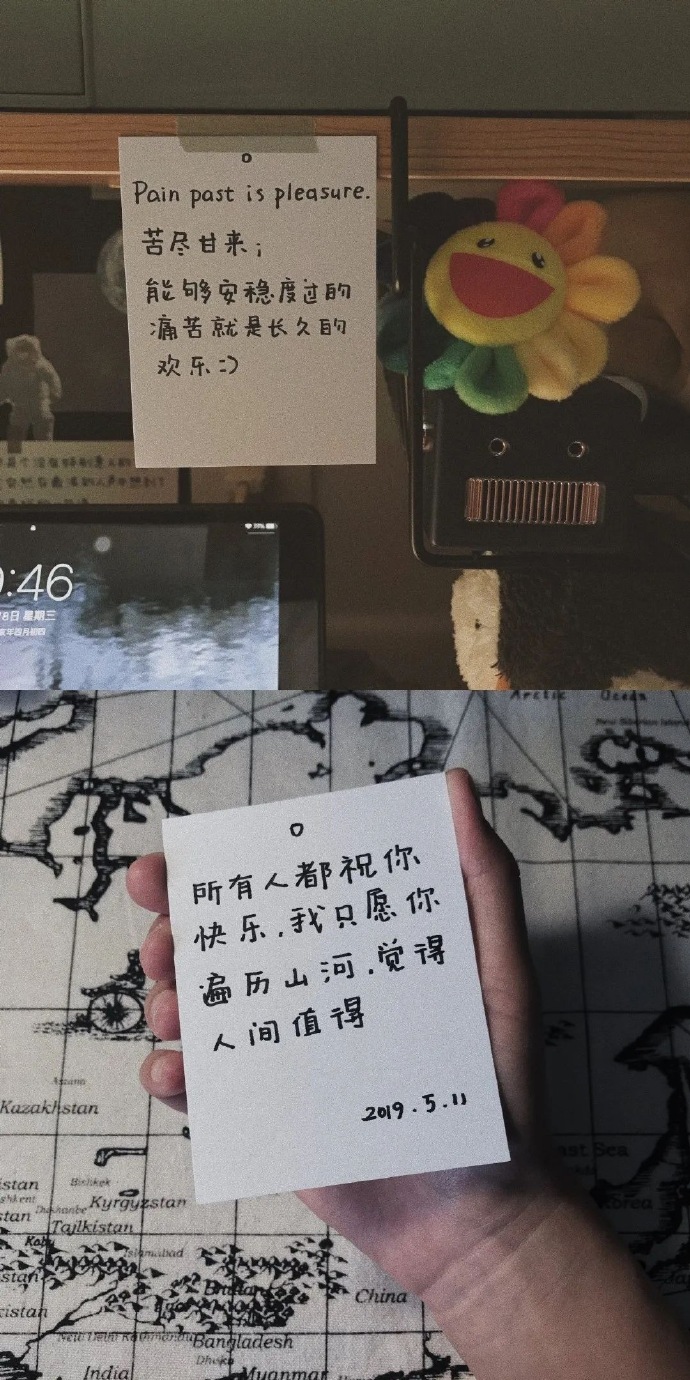 Pain past is pleasure.
苦尽甘来;
能够安稳度过的
痛苦就是长久的
欢乐:)
:46
8日 星期三
年四月初四
Arctic Ocean
所有人都祝你
快乐.我只愿你
遍历山河.觉得
人间值得
2019.5.11
Astana
Kazakhstan
Bishkek
Kyrgyzstan
Dushanbe
Tajlkistan
Islamabad
China
New Delhi Kathmandu
Bangladesh
Dhaka
India
Myanmar